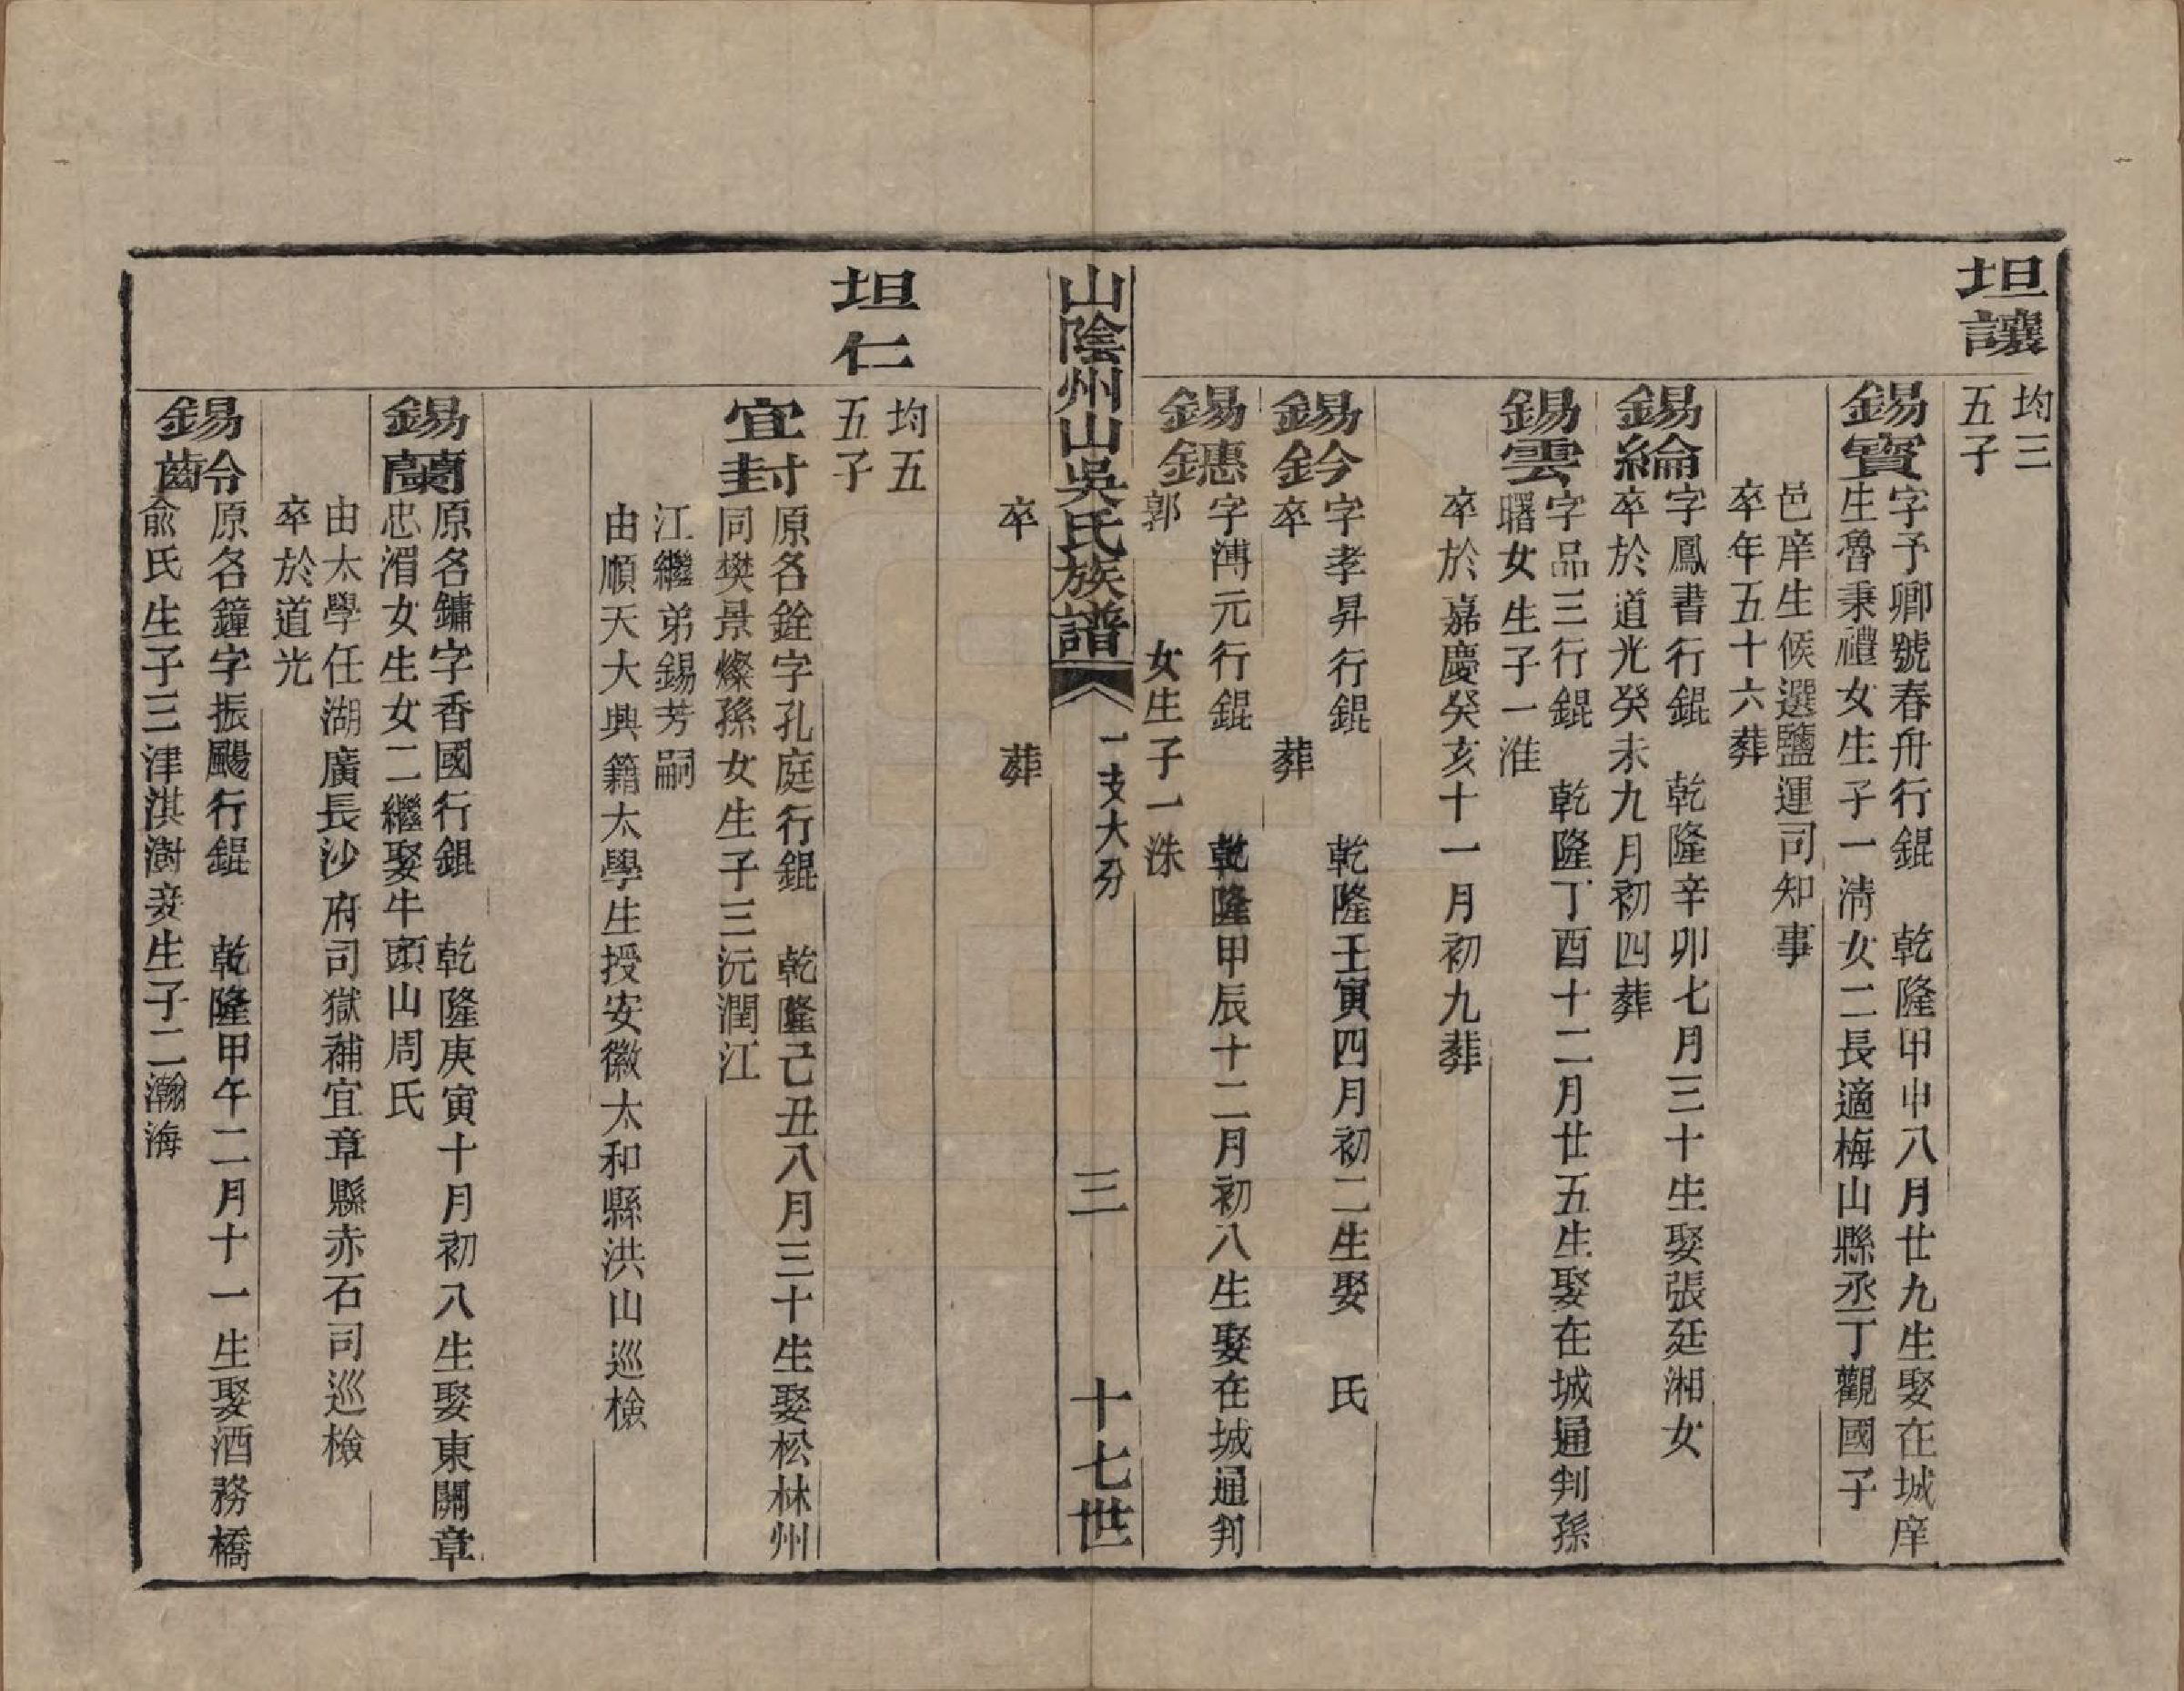 坦讓
均三
五子
錫寶
字予卿號春舟行錕　乾隆甲申八月廿九生娶在城庠
生魯秉禮女生子一淸女二長適梅山縣丞丁觀國子
邑庠生候選鹽運司知事
卒年五十六葬
錫綸
字鳳書行錕　乾隆辛卯七月三十生娶張廷湘女
卒於道光癸未九月初四葬
錫雲
字品三行錕　乾隆丁酉十二月廿五生娶在城通判孫
曙女生子一淮
卒於嘉慶癸亥十一月初九葬
錫鈐
字孝昇行錕　　乾隆壬寅四月初二生娶　氏
卒　　　　葬
錫鏸
字溥元行錕　　乾隆甲辰十二月初八生娶在城通判
郭　　女生子一洙
卒　　　　葬
山陰州山吳氏族譜　一支大分　三　十七世
坦仁
均五
五子
宜封
原名銓字孔庭行錕　乾隆己丑八月三十生娶松林州
同樊景燦孫女生子三沅潤江
江繼弟錫芳嗣
由順天大興籍太學生授安徽太和縣洪山巡檢
錫蘭
原名鏞字香國行錕　乾隆庚寅十月初八生娶東關章
忠湄女生女二繼娶牛頭山周氏
由太學任湖廣長沙府司獄補宜章縣赤石司巡檢
卒於道光
錫齡
原名鐘字振颺行錕　乾隆甲午二月十一生娶酒務橋
俞氏生子三津淇澍妾生子二瀚海